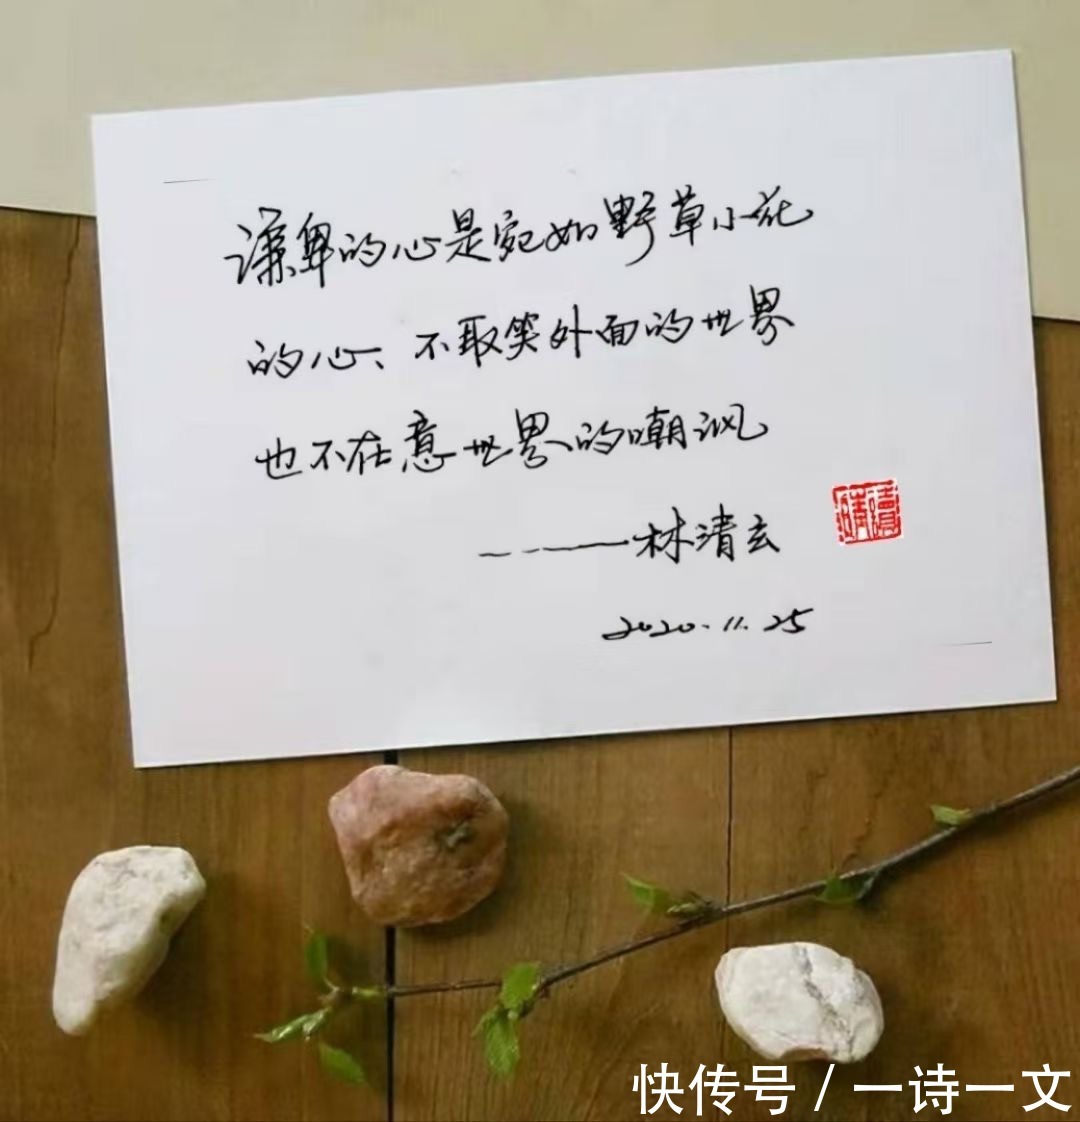 谦卑的心是宛如野草小花
的心、不取笑外面的世界
也不在意世界的嘲讽
----林清玄
2020.11.25
快传号 / 一诗一文